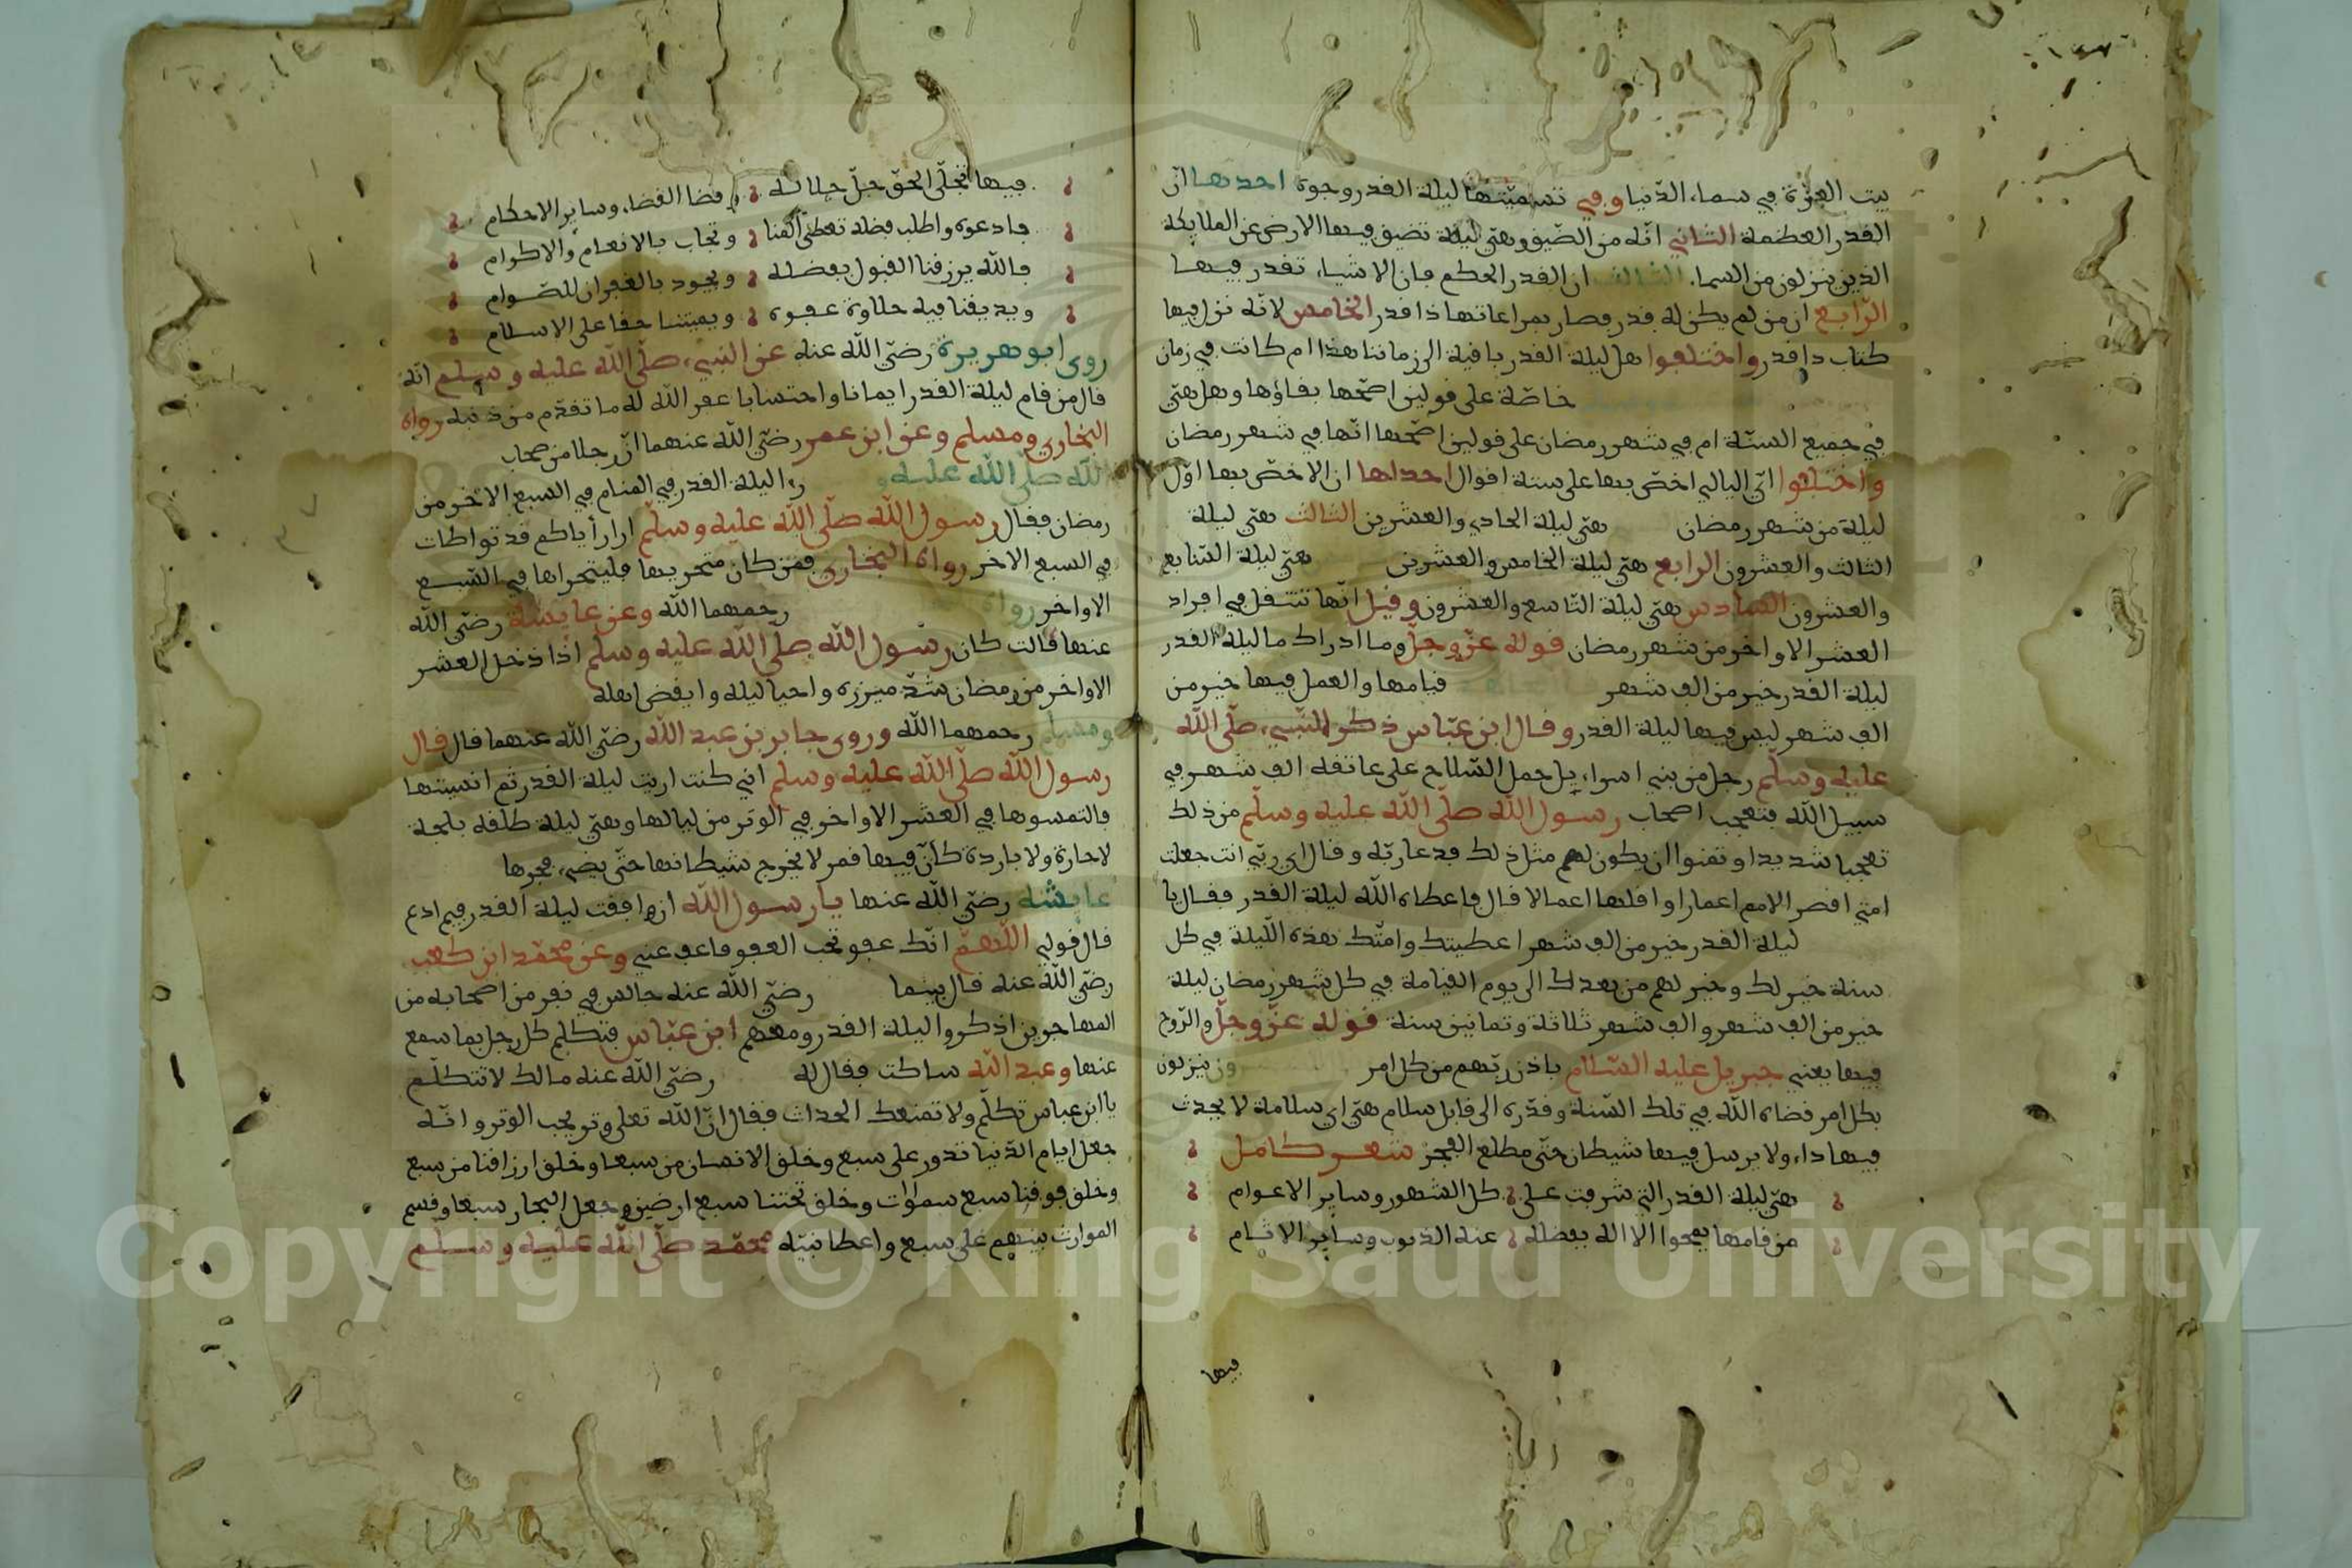 بيت العزة في سماء الدّنيا وفي تسميتها ليلة القدر وجوه احدها انّ
القدر العظمة الثاني انّه من الضّيق وهي ليلة تضيق فيها الارض عن الملايكة
الذين ينزلون من السما، الثالث ان القدر الحكم فان الاشياء تقدر فيها
الرّابع ان من لم يكن له قدر صار بمراعاتها ذا قدر الخامس لانّه نزل فيها
كتاب ذا قدر واختلفوا هل ليلة القدر باقية الى زماننا هذا ام كانت في زمان
خاصّة على قولين اصحّها بقاؤها وهل هي
في جميع السنّة ام في شهر رمضان على قولين اصحّها انّها في شهر رمضان
واختلفوا ايّ اليالي اخصّ بها على ستة اقوال احداها ان الاخصّ بها اوّل
ليلة من شهر رمضان هي ليلة الحادي والعشرين الثالث هي ليلة
الثالث والعشرون الرابع هي ليلة الخامس والعشرين هي ليلة السّابع
والعشرون السادس هي ليلة التاسع والعشرون وقيل انّها تنتقل في افراد
العشر الاواخر من شهر رمضان قوله عزّ وجلّ وما ادراك ما ليلة القدر
ليلة القدر خير من الف شهر قيامها والعمل فيها خير من
الف شهر ليس فيها ليلة القدر وقال ابن عبّاس ذكر للنّبيء صلّى الله
عليه وسلّم رجل من بني اسراءيل حمل السّلاح على عاتقه الف شهر في
سبيل الله فتعجب اصحاب رسول الله صلّى الله عليه وسلّم من ذلك
تعجبا شديدا وتمنوا ان يكون لهم مثل ذلك فدعا ربّه وقال اي ربّ انت جعلت
امتي اقصر الامم اعمارا واقلها اعمالا قال فاعطاه الله ليلة القدر فقال يا
ليلة القدر خير من الف شهر اعطيتك وامّتك هذه اللّيلة في كل
سنة خير لك وخير لهم من بعدك الى يوم القيامة في كل شهر رمضان ليلة
خير من الف شهر والف شهر ثلاثة وثمانين سنة قوله عزّ وجلّ والرّوح
فيها يعني جبريل عليه السّلام باذن ربّهم من كل امر ينزلون
بكل امر قضاه الله في تلك السّنة وقدّره الى قابل سلام هي اي سلامة لا يحدث
فيها داء ولا يرسل فيها شيطان حتّى مطلع الفجر شعر كامل
هي ليلة القدر التي شرفت على كل الشهور وساير الاعوام
من قامها يمحوا الا اله بفضله عنه الذنوب وساير الاثام
فيها
فيها تجلّى الحقّ جلّ جلاله وقضا القضاء وساير الاحكام
فادعوه واطلب فضله تعطى المنا وتجاب بالانعام والاكرام
فالله يرزقنا القبول بفضله ويجود بالغفران للصّوام
ويذيقنا فيه حلاوة عفوه ويميتنا حقا على الاسلام
روى ابو هريرة رضي الله عنه عن النبيء صلّى الله عليه وسلم انّه
قال من قام ليلة القدر ايمانا واحتسابا غفر الله له ما تقدّم من ذنبه رواه
البخاري ومسلم وعن ابن عمر رضي الله عنهما انّ رجلا من صحاب
الله صلّى الله عليه و را ليلة القدر في المنام في السبع الاخر من
رمضان فقال رسول الله صلّى الله عليه وسلّم ارا رأياكم قد تواطات
في السبع الاخر رواه البخاري فمن كان متحريها فليتحراها في السّبع
الاواخر رواه رحمهما الله وعن عايشة رضي الله
عنها قالت كان رسول الله صلى الله عليه وسلم اذا دخل العشر
الاواخر من رمضان شدّ ميزره واحيا ليله وايقض اهله
ومسلم رحمهما الله وروى جابر بن عبد الله رضي الله عنهما قال قال
رسول الله صلّى الله عليه وسلم اني كنت اريت ليلة القدر ثم انسيتها
فالتمسوها في العشر الاواخر في الوتر من ليالها وهي ليلة طلقة بلجة
لا حارة ولا باردة كانّ فيها قمر لا يخرج شيطانها حتّى يضيء فجرها
عايشه رضي الله عنها يا رسول الله ان وافقت ليلة القدر فبم ادع
قال قولي اللهمّ انّك عفو تحب العفو فاعف عني وعن محمّد ابن كعب
رضي الله عنه قال بينما رضي الله عنه جالس في نفر من اصحابه من
المهاجرين اذ كروا ليلة القدر ومعهم ابن عبّاس فتكلم كل رجل بما سمع
عنها وعبد الله ساكت فقال له رضي الله عنه مالك لا تتكلّم
يا ابن عباس تكلّم ولا تمنعك الحداث فقال انّ الله تعلى وتر يحب الوتر وانّه
جعل ايام الدّنيا تدور على سبع وخلق الانسان من سبعا وخلق ارزاقنا من سبع
وخلق فوقنا سبع سموات وخلق تحتنا سبع ارضين وجعل البحار سبعا وقسم
الموارث بينهم على سبع واعطا نبيّه محمّد صلّى الله عليه وسلّم
Copyright © King Saud University